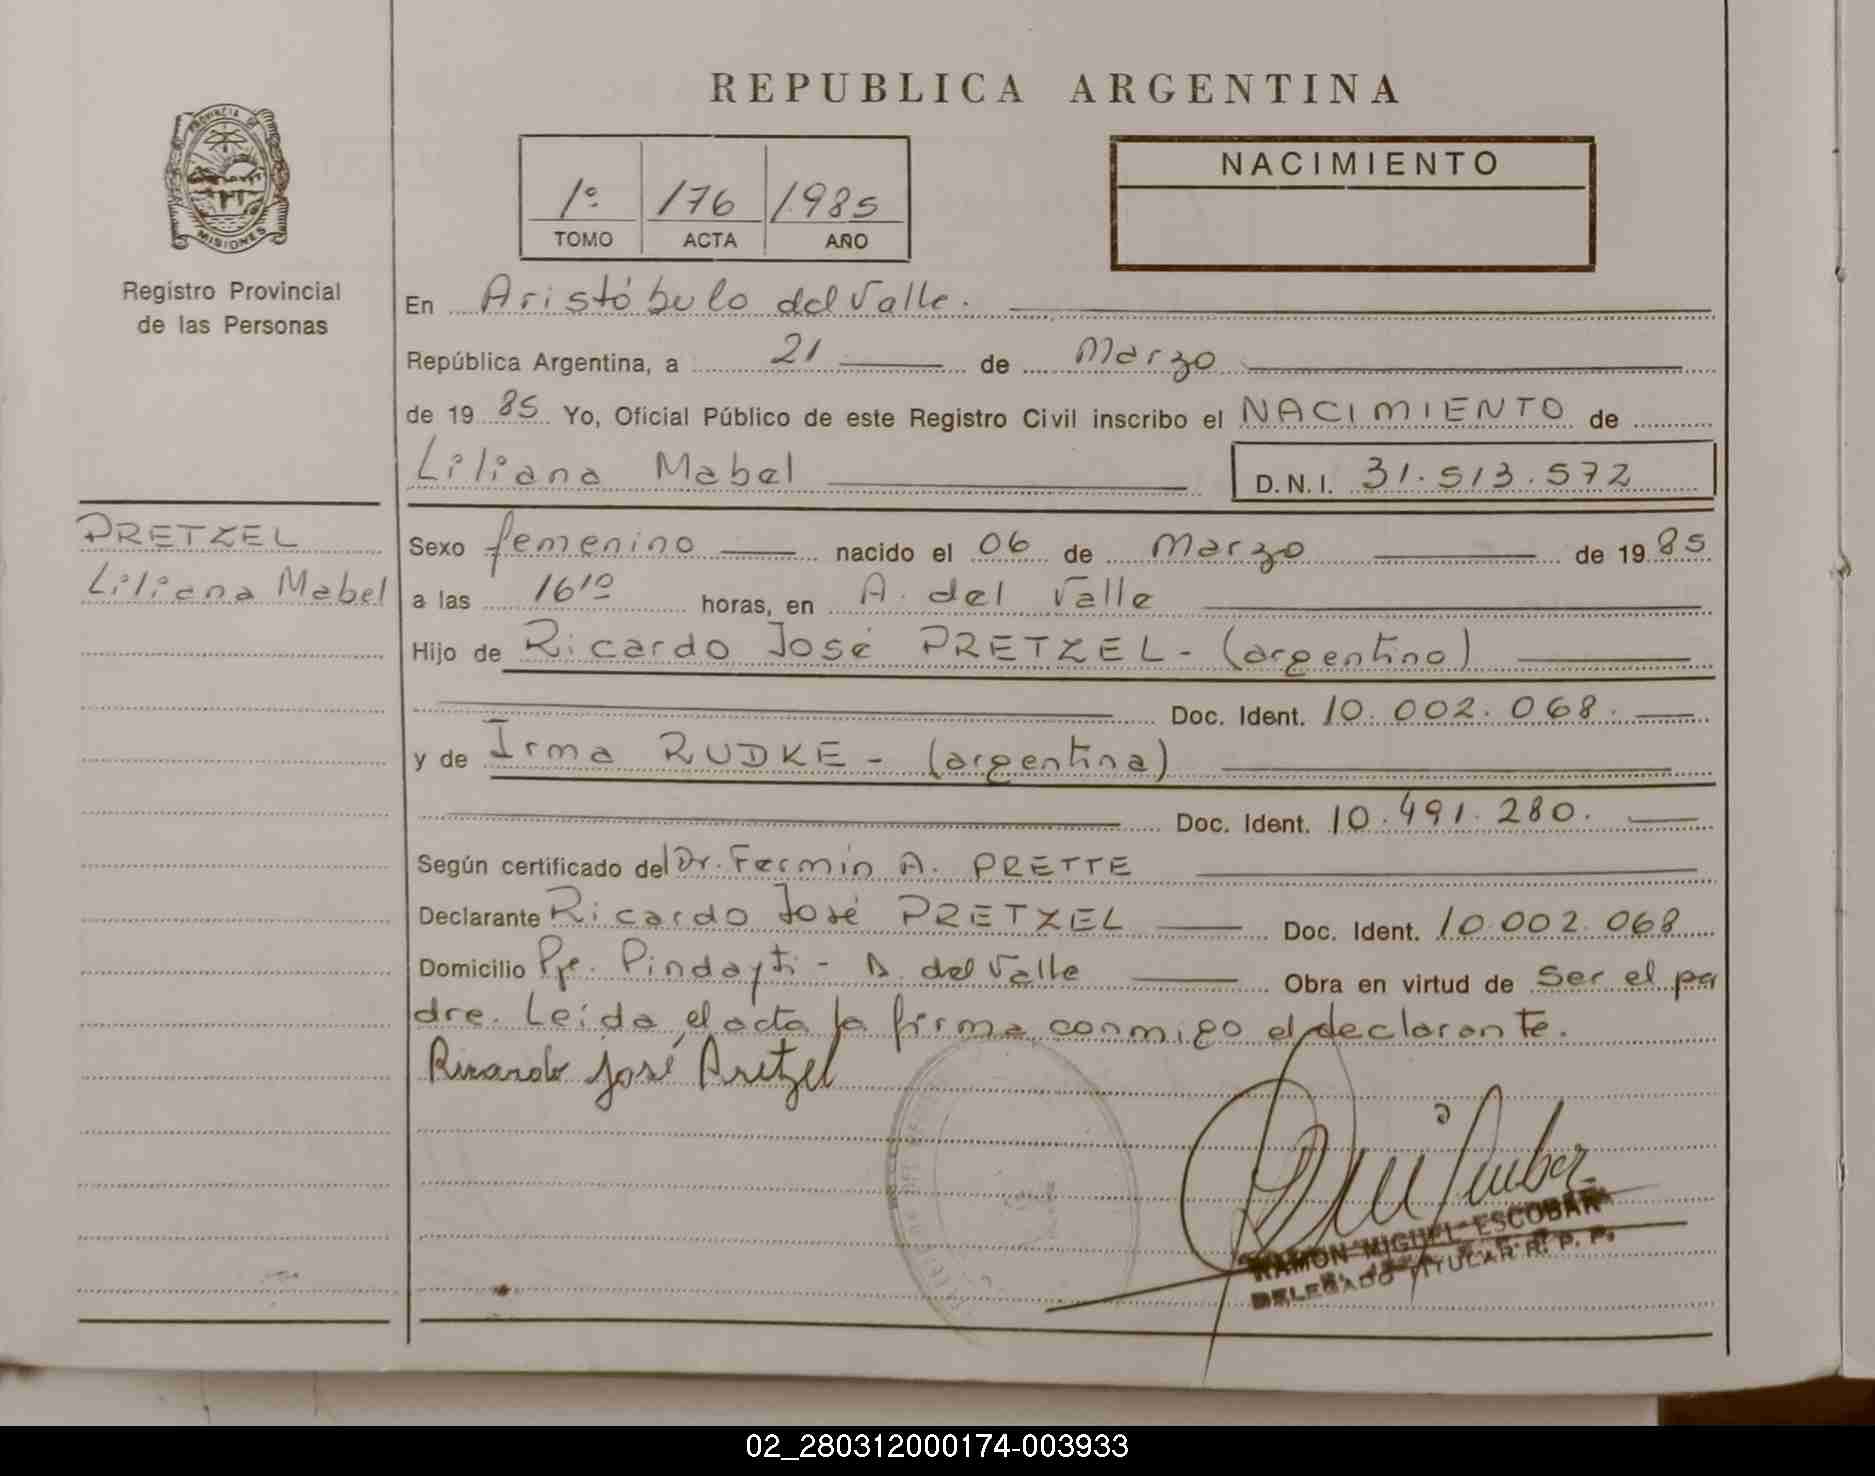 REPUBLICA ARGENTINA
PROVINCIA DE
MISIONES
Registro Provincial
de las Personas
1º 176 1985
TOMO ACTA AÑO
NACIMIENTO
En Aristóbulo del Valle.
República Argentina, a 21 de Marzo
de 19 85 Yo, Oficial Público de este Registro Civil inscribo el NACIMIENTO de
Liliana Mabel D.N.I. 31.513.572
PRETZEL
Liliana Mabel
Sexo femenino nacido el 06 de Marzo de 19 85
a las 16¹⁰ horas, en A. del Valle
Hijo de Ricardo José PRETZEL - (argentino)
Doc. Ident. 10.002.068.
y de Irma RUDKE - (argentina)
Doc. Ident. 10.491.280.
Según certificado del Dr. Fermín A. PRETTE
Declarante Ricardo José PRETZEL Doc. Ident. 10.002.068
Domicilio Pje. Pindayti - A. del Valle Obra en virtud de ser el pa
dre. Leída el acta la firma conmigo el declarante.
Ricardo José Pretzel
RAMON MIGUEL ESCOBAR
DELEGADO TITULAR R. P. P.
02_280312000174-003933